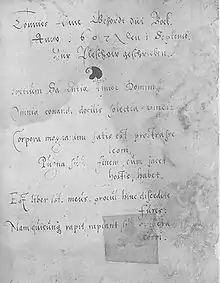 Tönnies Fene Behordt düt Boek
Anno 1607 Den 1 Septemb.
Zur Pleschow geschrieben.
Initium
timor Domini
Omnia conando docilis solertia vincit
Corpora magnanimo satis est prostrasse
leoni
Pugna suum finem, cum jacet
hostis, habet.
Est liber iste meus, procul hinc discedite
fures:
Nam quicunque rapit rapiant
corvi.